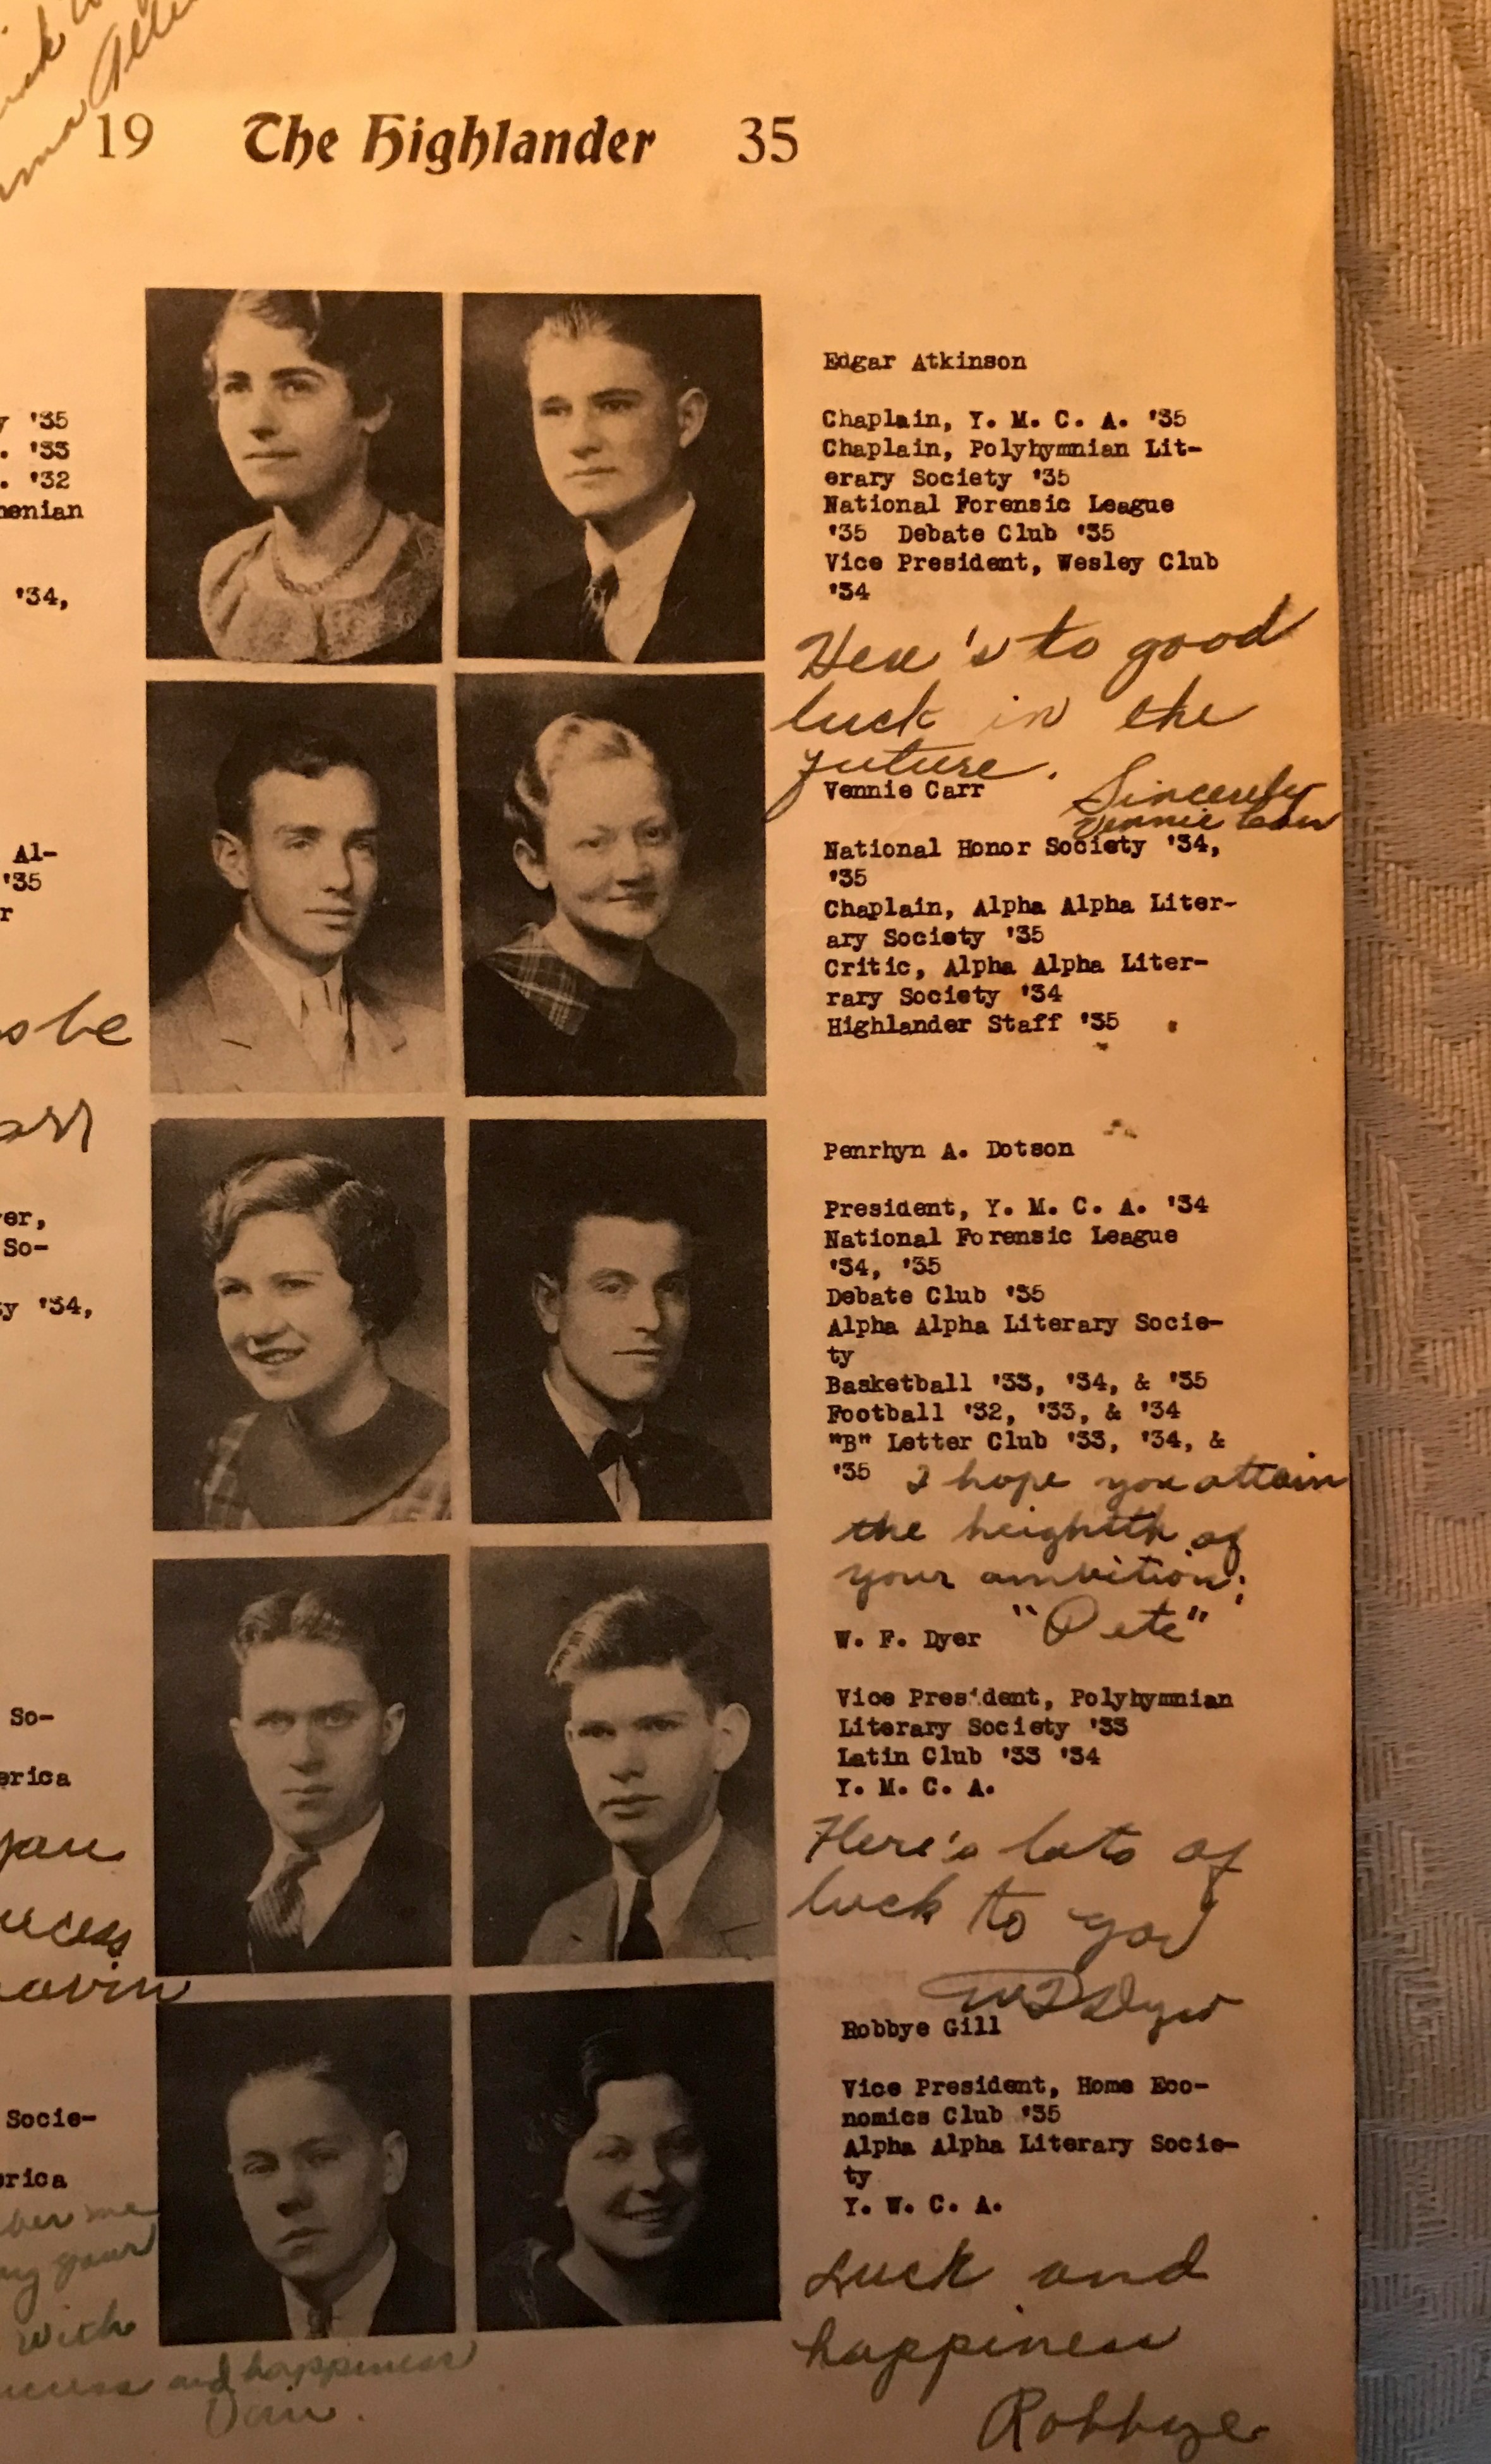 19 The Highlander 35
'35
'33
'32
'34,
Al-
'35
er,
So-
'34,
So-
Socie-
with
and happiness
Edgar Atkinson
Chaplain, Y. M. C. A. '35
Chaplain, Polyhymnian Lit-
erary Society '35
National Forensic League
'35 Debate Club '35
Vice President, Wesley Club
'34
Here's to good
luck in the
future.
Sincerely
Vennie Carr
Vennie Carr
National Honor Society '34,
'35
Chaplain, Alpha Alpha Liter-
ary Society '35
Critic, Alpha Alpha Liter-
rary Society '34
Highlander Staff '35
Penrhyn A. Dotson
President, Y. M. C. A. '34
National Forensic League
'34, '35
Debate Club '35
Alpha Alpha Literary Socie-
ty
Basketball '33, '34, & '35
Football '32, '33, & '34
"B" Letter Club '33, '34, &
'35 I hope you attain
the heighth of
your ambition;
"Pete"
W. F. Dyer
Vice President, Polyhymnian
Literary Society '33
Latin Club '33 '34
Y. M. C. A.
Here's lots of
luck to you
W F Dyer
Robbye Gill
Vice President, Home Eco-
nomics Club '35
Alpha Alpha Literary Socie-
ty
Y. W. C. A.
Luck and
happiness
Robbye